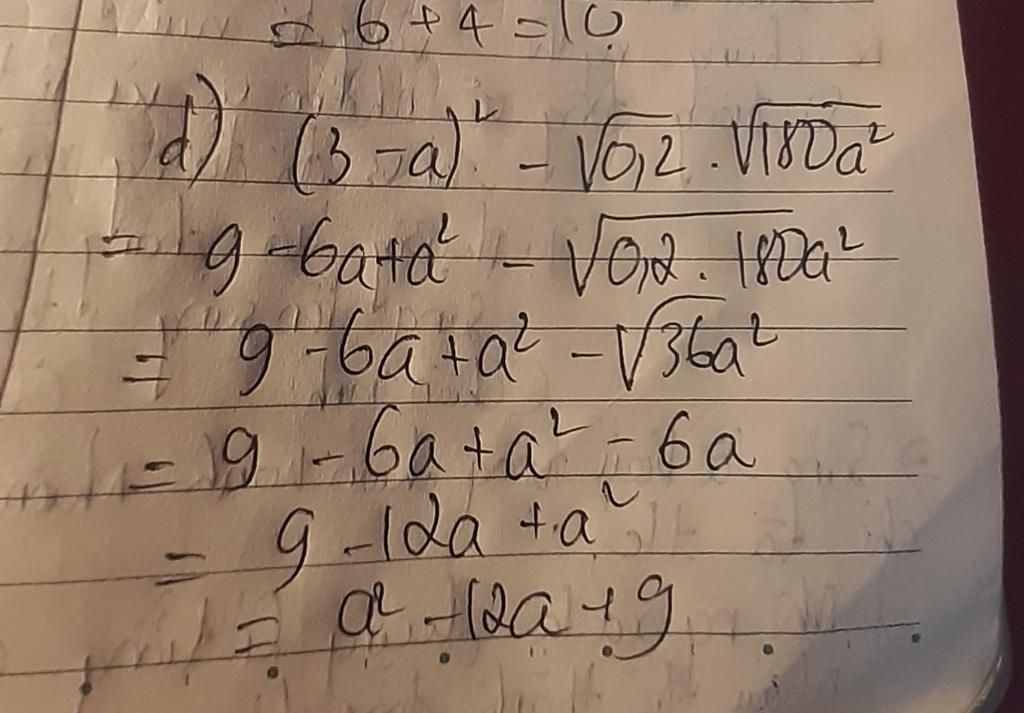 = 6 + 4 = 10
d) (3 - a)² - √0,2 . √180a²
= 9 - 6a + a² - √0,2 . 180a²
= 9 - 6a + a² - √36a²
= 9 - 6a + a² - 6a
= 9 - 12a + a²
= a² - 12a + 9